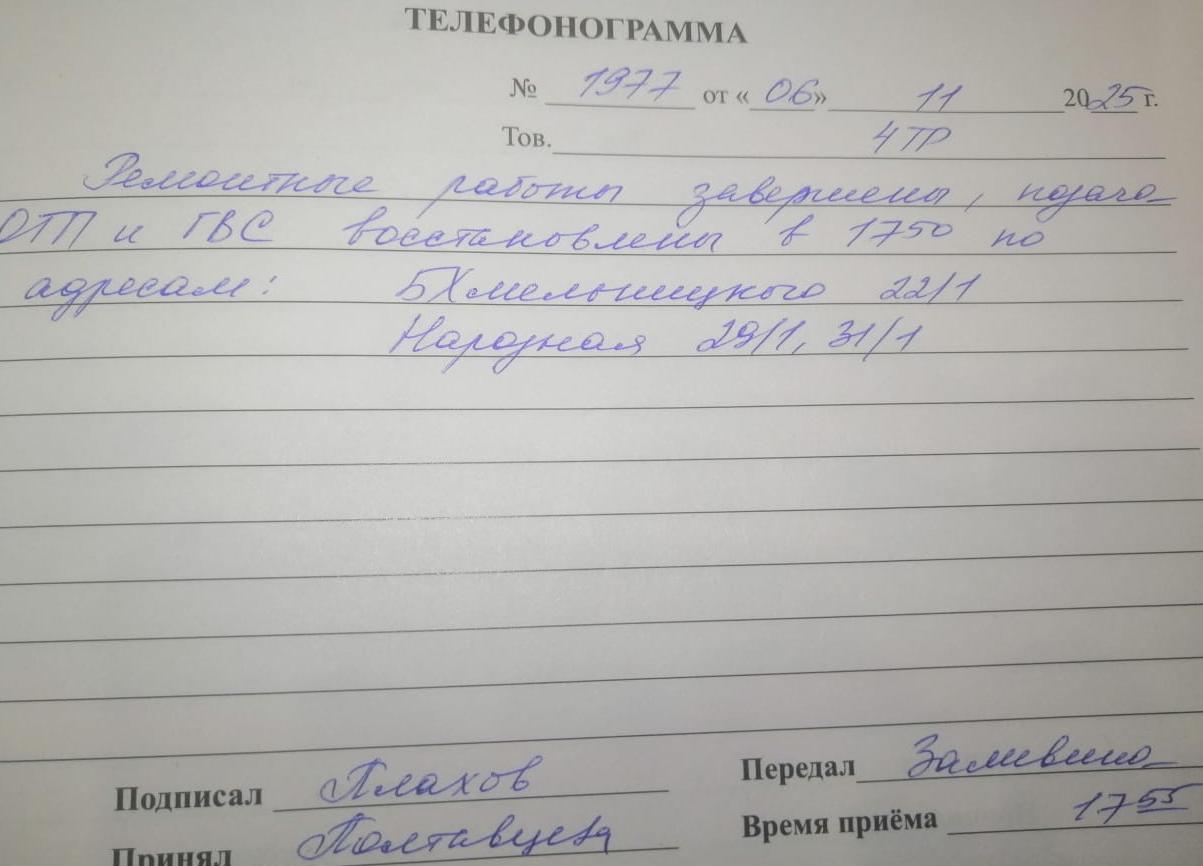 ТЕЛЕФОНОГРАММА
№ 1977 от « 06 » 11 2025 г.
Тов. 4 ТР
Ремонтные работы завершены, подача
ОТП и ГВС восстановлены в 17 50 по
адресам: БХмельницкого 22/1
Народная 29/1, 31/1
Подписал Плахов Передал
Принял Полтавцева Время приёма 17 55